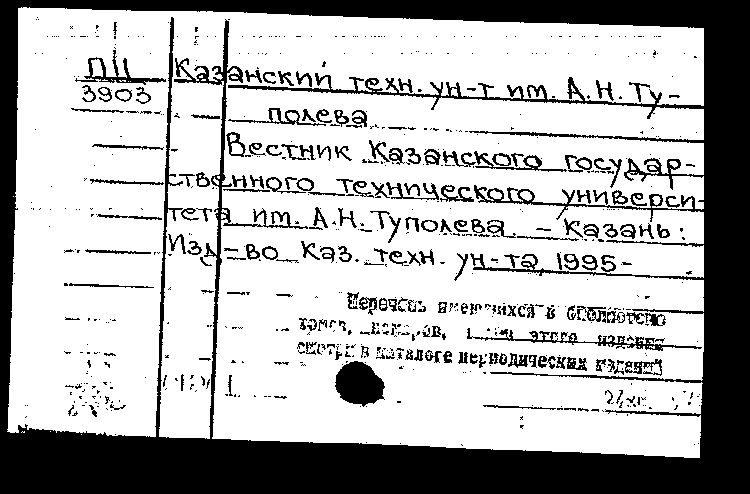 П11 Казанский техн. ун-т им. А.Н. Ту-
3903 полева
Вестник Казанского государ-
ственного технического универси-
тета им. А.Н. Туполева. - Казань:
Изд-во Каз. техн. ун-та, 1995-
Перечень имеющихся в библиотеке
томов, номеров, этого издания
смотри в каталоге периодических изданий